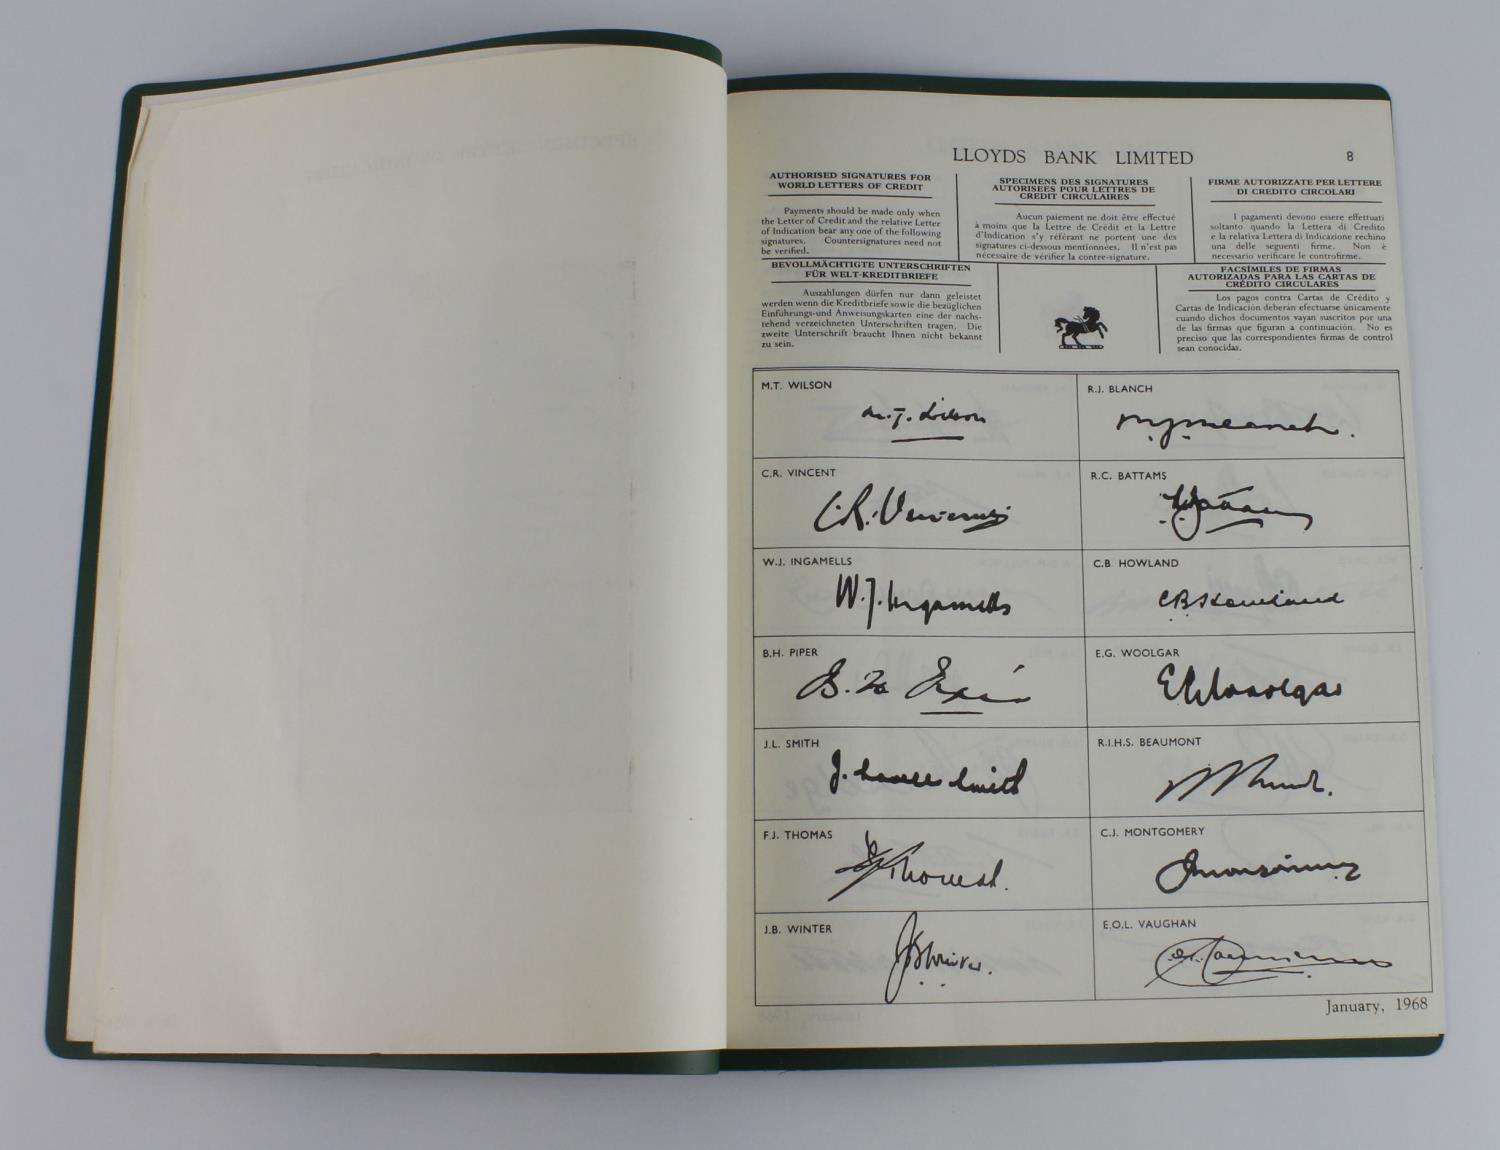 LLOYDS BANK LIMITED
8
AUTHORISED SIGNATURES FOR
WORLD LETTERS OF CREDIT
Payments should be made only when
the Letter of Credit and the relative Letter
of Indication bear any one of the following
signatures. Countersignatures need not
be verified.
SPECIMENS DES SIGNATURES
AUTORISEES POUR LETTRES DE
CREDIT CIRCULAIRES
Aucun paiement ne doit être effectué
à moins que la Lettre de Crédit et la Lettre
d'Indication s'y référant ne portent une des
signatures ci-dessous mentionnées. Il n'est pas
nécessaire de vérifier la contre-signature.
FIRME AUTORIZZATE PER LETTERE
DI CREDITO CIRCOLARI
I pagamenti devono essere effettuati
soltanto quando la Lettera di Credito
e la relativa Lettera di Indicazione rechino
una delle seguenti firme. Non è
necessario verificare le controfirme.
BEVOLLMÄCHTIGTE UNTERSCHRIFTEN
FÜR WELT-KREDITBRIEFE
Auszahlungen dürfen nur dann geleistet
werden wenn die Kreditbriefe sowie die bezüglichen
Einführungs-und Anweisungskarten eine der nachs-
tehend verzeichneten Unterschriften tragen. Die
zweite Unterschrift braucht Ihnen nicht bekannt
zu sein.
FACSÍMILES DE FIRMAS
AUTORIZADAS PARA LAS CARTAS DE
CRÉDITO CIRCULARES
Los pagos contra Cartas de Crédito y
Cartas de Indicación deberán efectuarse únicamente
cuando dichos documentos vayan suscritos por una
de las firmas que figuran a continuación. No es
preciso que las correspondientes firmas de control
sean conocidas.
M.T. WILSON
R.J. BLANCH
C.R. VINCENT
R.C. BATTAMS
C.R. Vincent
W.J. INGAMELLS
C.B. HOWLAND
W.J. Ingamells
CB Howland
B.H. PIPER
E.G. WOOLGAR
E G Woolgar
J.L. SMITH
R.I.H.S. BEAUMONT
F.J. THOMAS
C.J. MONTGOMERY
J.B. WINTER
E.O.L. VAUGHAN
JB Winter.
January, 1968